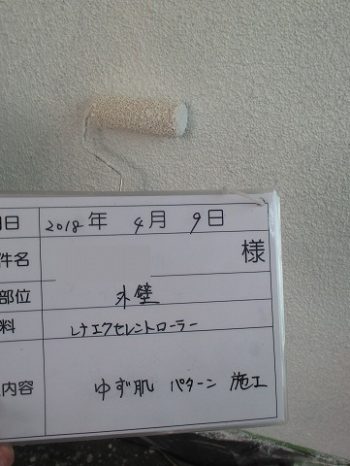 日 2018年 4月 9日
件名 様
部位 外壁
料 レナエクセレントローラー
内容 ゆず肌 パターン 施工